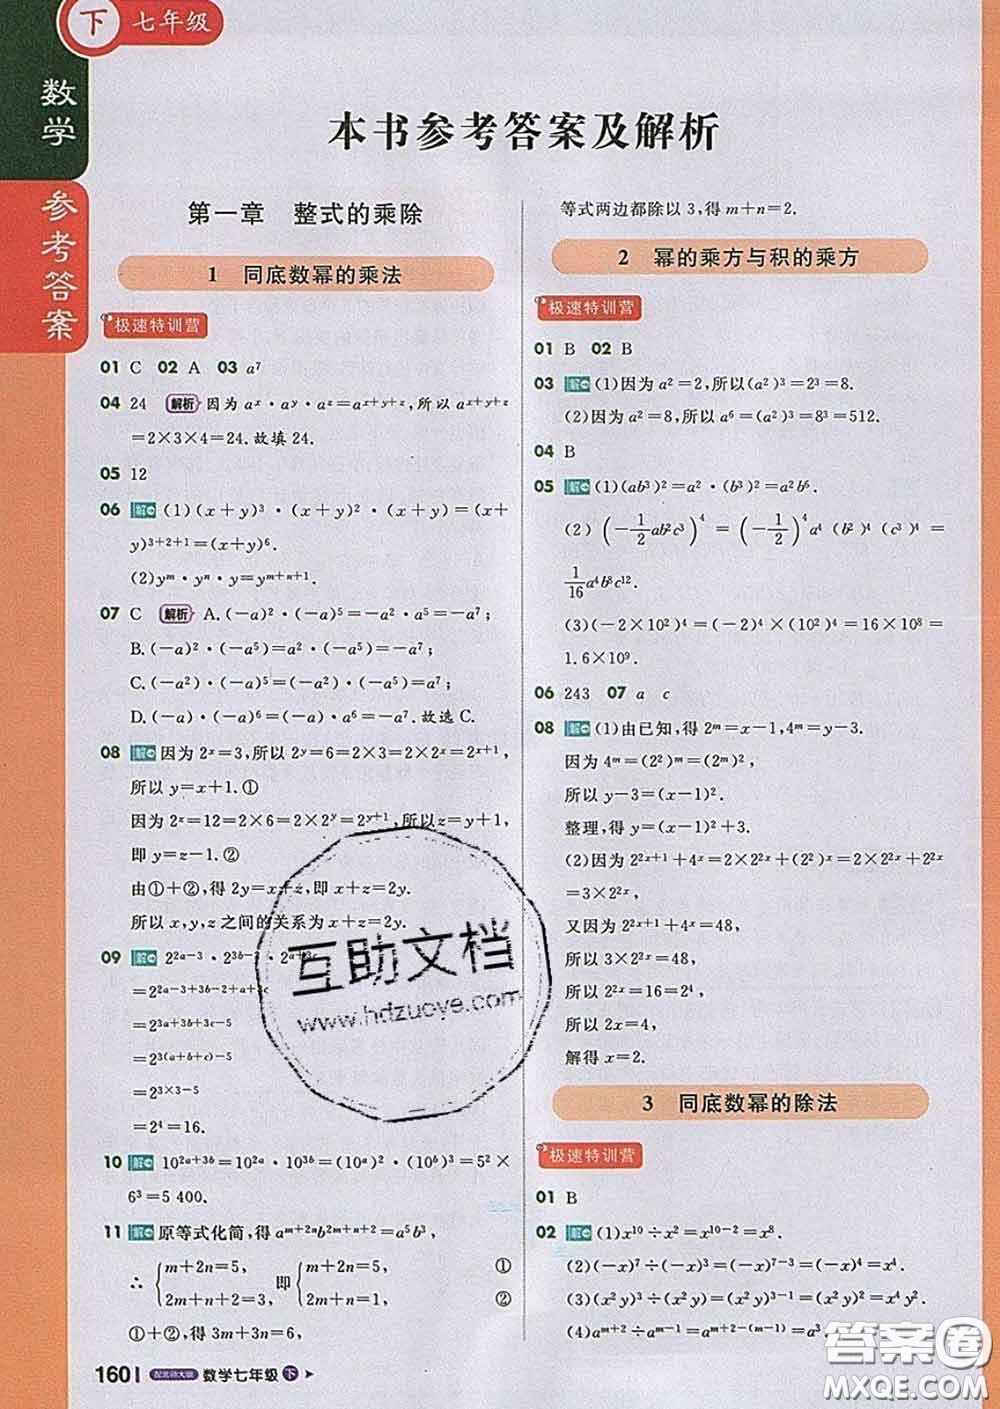 下 七年级
数学
参考答案
本书参考答案及解析
第一章 整式的乘除
1 同底数幂的乘法
极速特训营
01 C 02 A 03 a⁷
04 24 解析 因为 aˣ·aʸ·aᶻ=aˣ⁺ʸ⁺ᶻ,所以 aˣ⁺ʸ⁺ᶻ
=2×3×4=24.故填 24.
05 12
06 解 (1)(x+y)³·(x+y)²·(x+y)=(x+
y)³⁺²⁺¹=(x+y)⁶.
(2)yᵐ·yⁿ·y=yᵐ⁺ⁿ⁺¹.
07 C 解析 A.(-a)²·(-a)⁵=-a²·a⁵=-a⁷;
B.(-a)²·(-a⁵)=a²·(-a⁵)=-a⁷;
C.(-a²)·(-a)⁵=(-a²)·(-a⁵)=a⁷;
D.(-a)·(-a)⁶=(-a)·a⁶=-a⁷.故选 C.
08 解 因为 2ˣ=3,所以 2ʸ=6=2×3=2×2ˣ=2ˣ⁺¹,
所以 y=x+1.①
因为 2ᶻ=12=2×6=2×2ʸ=2ʸ⁺¹,所以 z=y+1,
即 y=z-1.②
由①+②,得 2y=x+z,即 x+z=2y.
所以 x,y,z 之间的关系为 x+z=2y.
09 解 2²ᵃ⁻³·2³ᵇ⁻²·2ᵃ⁺³ᶜ
=2²ᵃ⁻³⁺³ᵇ⁻²⁺ᵃ⁺³ᶜ
=2³ᵃ⁺³ᵇ⁺³ᶜ⁻⁵
=2³⁽ᵃ⁺ᵇ⁺ᶜ⁾⁻⁵
=2³ˣ³⁻⁵
=2⁴=16.
10 解 10²ᵃ⁺³ᵇ=10²ᵃ·10³ᵇ=(10ᵃ)²·(10ᵇ)³=5²×
6³=5 400.
11 解 原等式化简,得 aᵐ⁺²ⁿb²ᵐ⁺ⁿ⁺²=a⁵b³,
∴ {m+2n=5, 即 {m+2n=5, ①
2m+n+2=3, 2m+n=1, ②
①+②,得 3m+3n=6,
160 配北师大版 数学七年级 下
等式两边都除以 3,得 m+n=2.
2 幂的乘方与积的乘方
极速特训营
01 B 02 B
03 解 (1)因为 a²=2,所以(a²)³=2³=8.
(2)因为 a²=8,所以 a⁶=(a²)³=8³=512.
04 B
05 解 (1)(ab³)²=a²·(b³)²=a²b⁶.
(2) (-1/2ab²c³)⁴ = (-1/2)⁴a⁴ (b²)⁴ (c³)⁴ =
1/16a⁴b⁸c¹².
(3)(-2×10²)⁴=(-2)⁴×(10²)⁴=16×10⁸=
1.6×10⁹.
06 243 07 a c
08 解 (1)由已知,得 2ᵐ=x-1,4ᵐ=y-3.
因为 4ᵐ=(2²)ᵐ=(2ᵐ)²,
所以 y-3=(x-1)².
整理,得 y=(x-1)²+3.
(2)因为 2²ˣ⁺¹+4ˣ=2×2²ˣ+(2²)ˣ=2×2²ˣ+2²ˣ
=3×2²ˣ,
又因为 2²ˣ⁺¹+4ˣ=48,
所以 3×2²ˣ=48,
所以 2²ˣ=16=2⁴,
所以 2x=4,
解得 x=2.
3 同底数幂的除法
极速特训营
01 B
02 解 (1)x¹⁰÷x²=x¹⁰⁻²=x⁸.
(2)(-x)⁷÷(-x)³=(-x)⁷⁻³=(-x)⁴=x⁴.
(3)(x²y)³÷(x²y)=(x²y)³⁻¹=(x²y)²=x⁴y².
(4)aᵐ⁺²÷aᵐ⁻¹=aᵐ⁺²⁻ᵐ⁺¹=a³.
互助文档
www.hdzuoye.com
答案圈
MXQE.COM